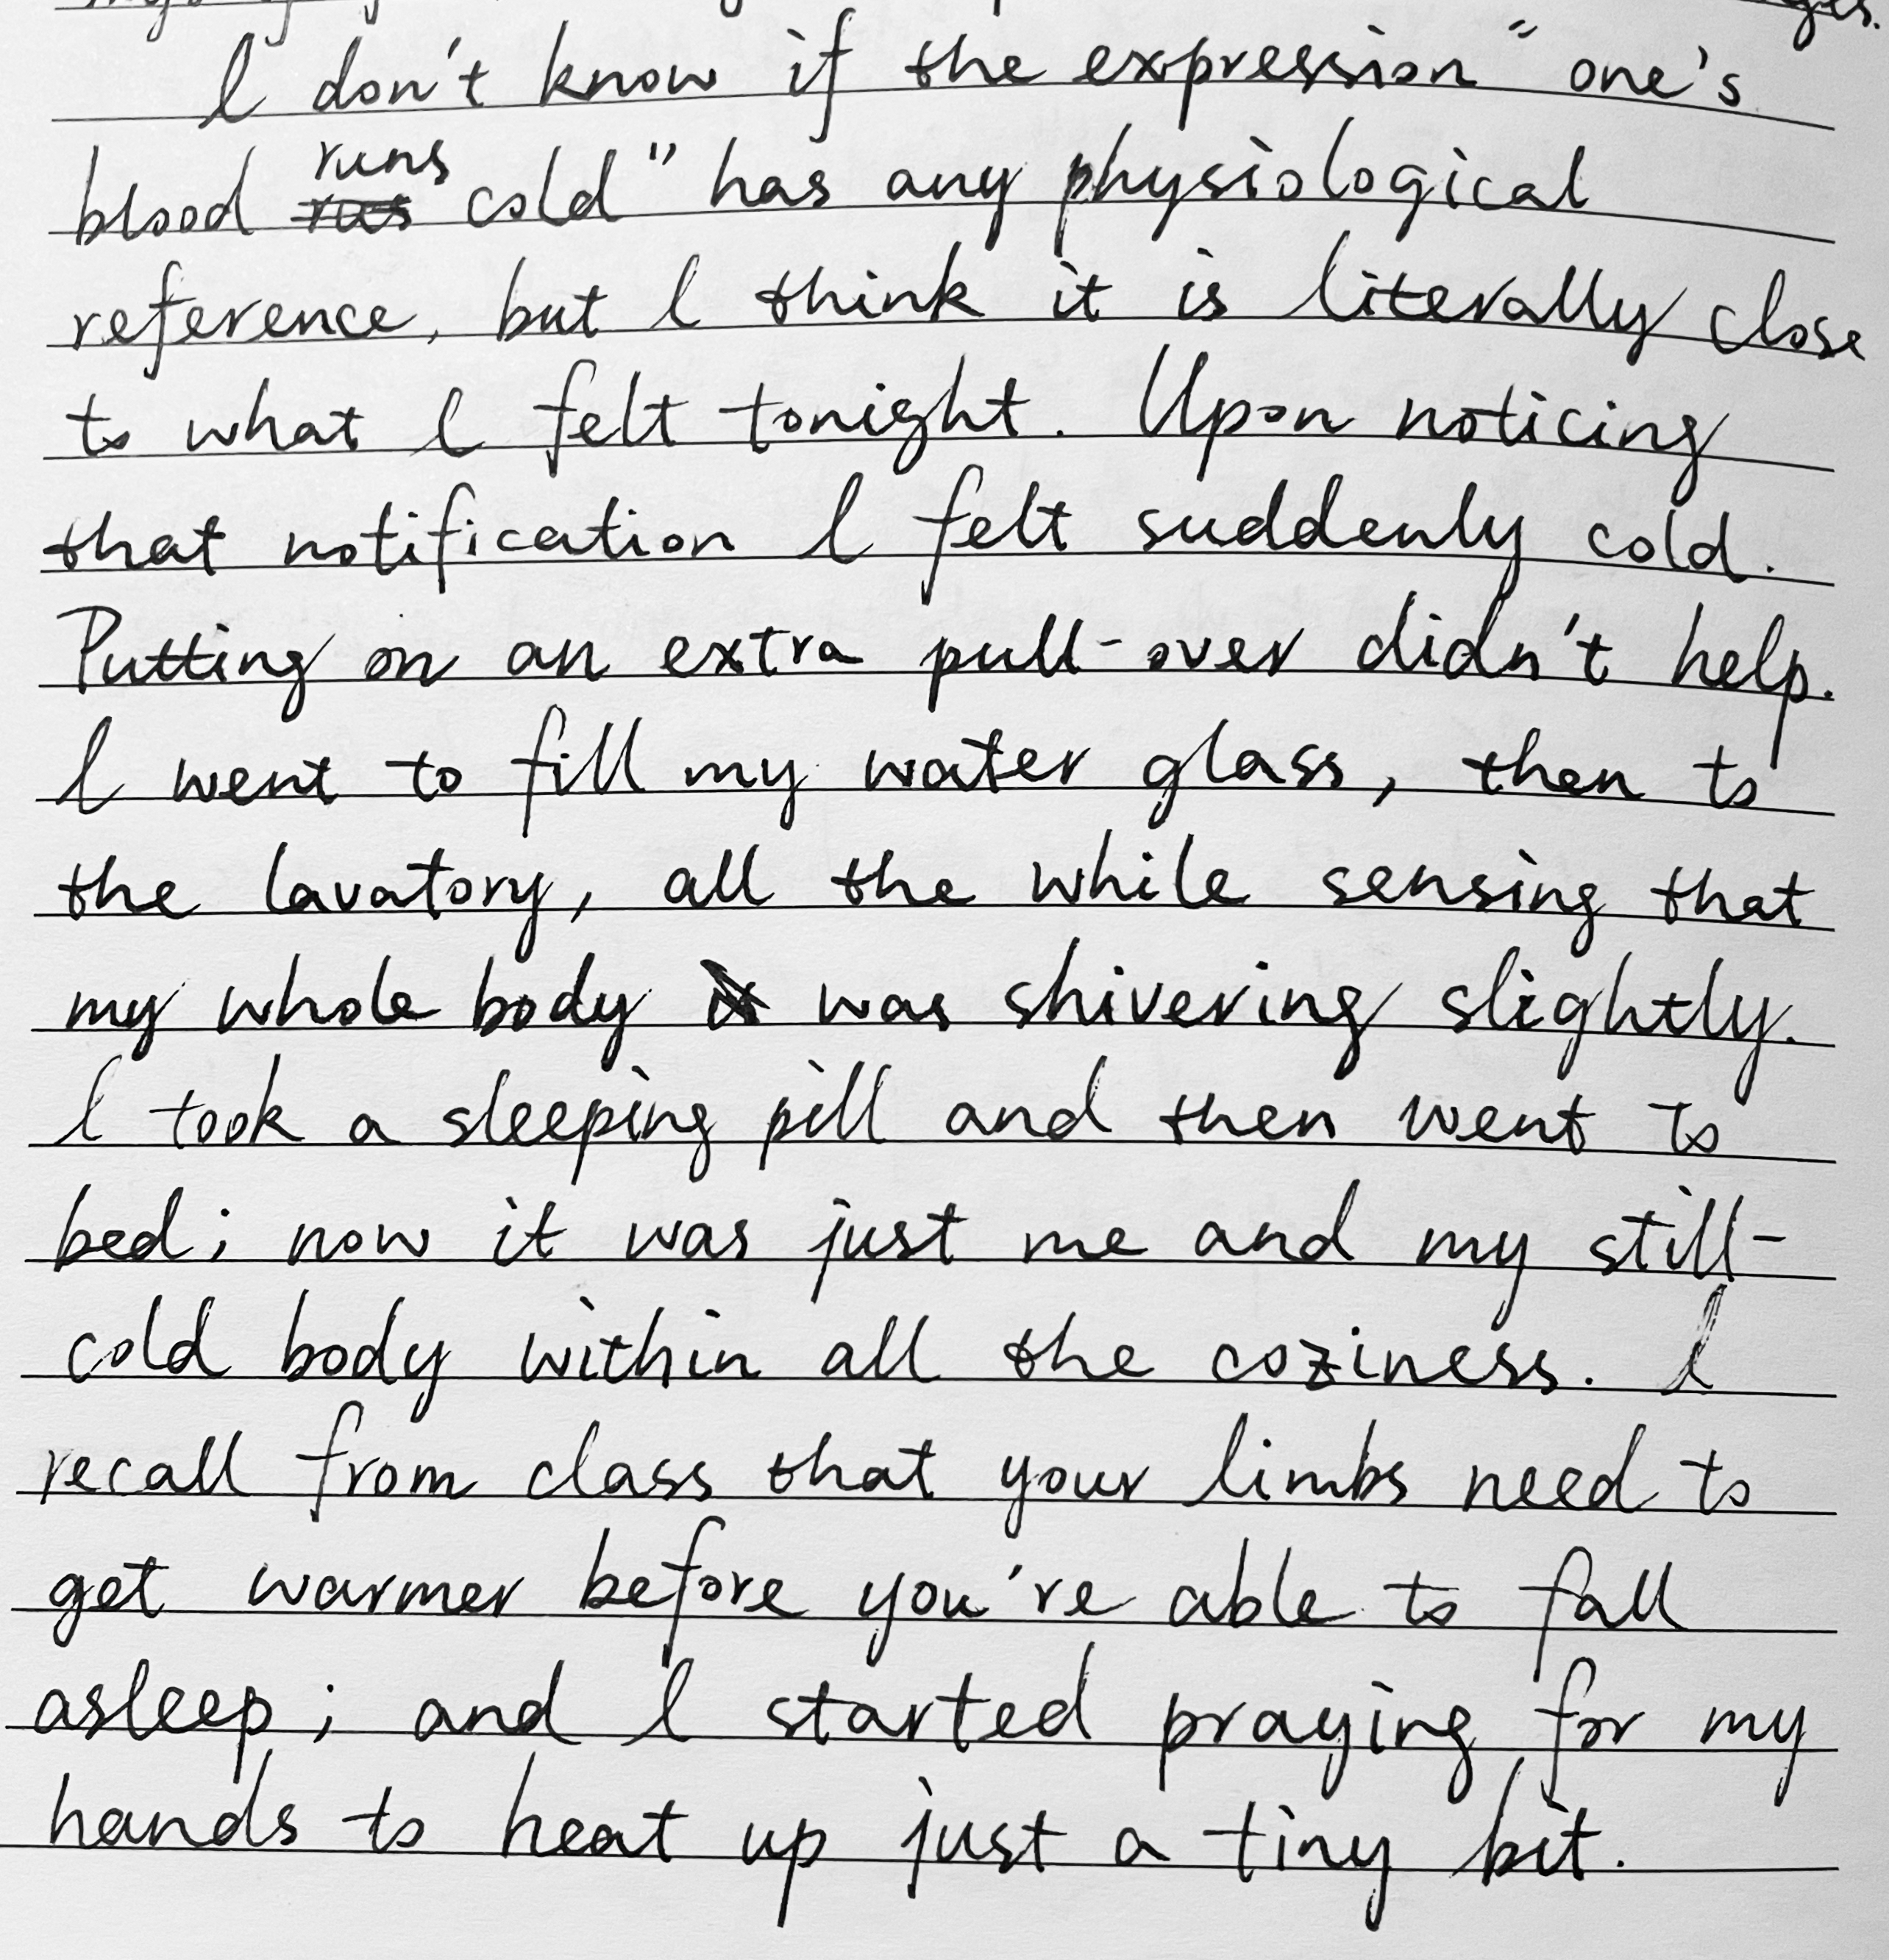 I don't know if the expression "one's
blood runs cold" has any physiological
reference, but I think it is literally close
to what I felt tonight. Upon noticing
that notification I felt suddenly cold.
Putting on an extra pull-over didn't help.
I went to fill my water glass, then to
the lavatory, all the while sensing that
my whole body was shivering slightly.
I took a sleeping pill and then went to
bed; now it was just me and my still-
cold body within all the coziness. I
recall from class that your limbs need to
get warmer before you're able to fall
asleep; and I started praying for my
hands to heat up just a tiny bit.